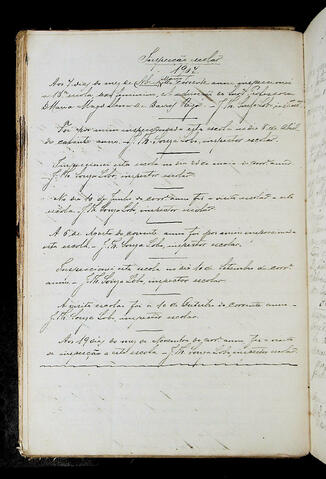 Inspecção escolar
1907
Aos 7 dias do mez de
15ª escola,
D. Maria
Foi por mim inspeccionada esta escola no dia 8 de Abril
do corrente anno. J. Th. Souza Lobo, inspector escolar.
Inspeccionei esta escola no dia de maio do corrte anno
J. Th. Souza Lobo, inspector escolar.
No dia 10 de Junho do corrte anno fiz a visita escolar a esta
escola. J. Th. Souza Lobo, inspector escolar.
A 6 de Agosto do corrente anno foi por mim inspeccionada
esta escola. J. Th. Souza Lobo, inspector escolar.
Inspeccionei esta escola no dia 10 de Setembro do corrte
anno. J. Th. Souza Lobo, inspector escolar.
A visita escolar fiz a 10 de Outubro do corrente anno.
J. Th. Souza Lobo, inspector escolar.
Aos 19 dias do mez de Novembro do corrte anno fiz a visita
de inspecção a esta escola. J. Th. Souza Lobo, inspector escolar.